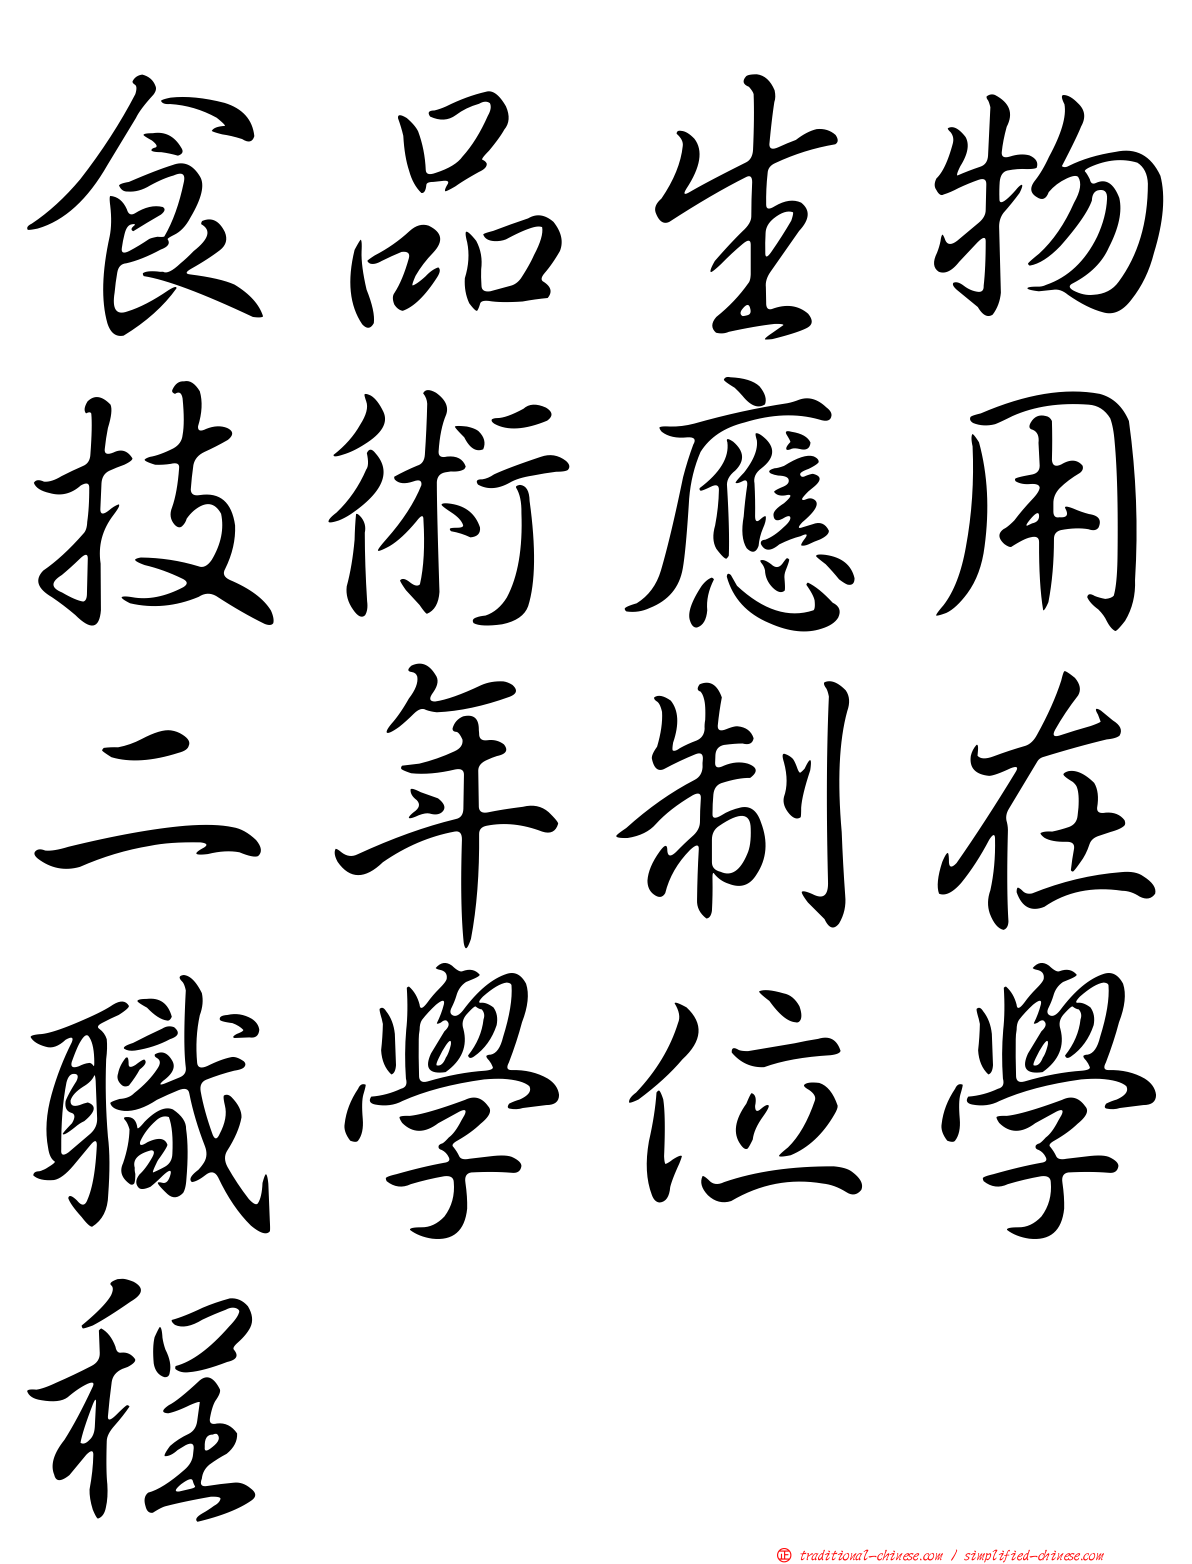 食品生物
技術應用
二年制在
職學位學
程
㊣ traditional-chinese.com / simplified-chinese.com